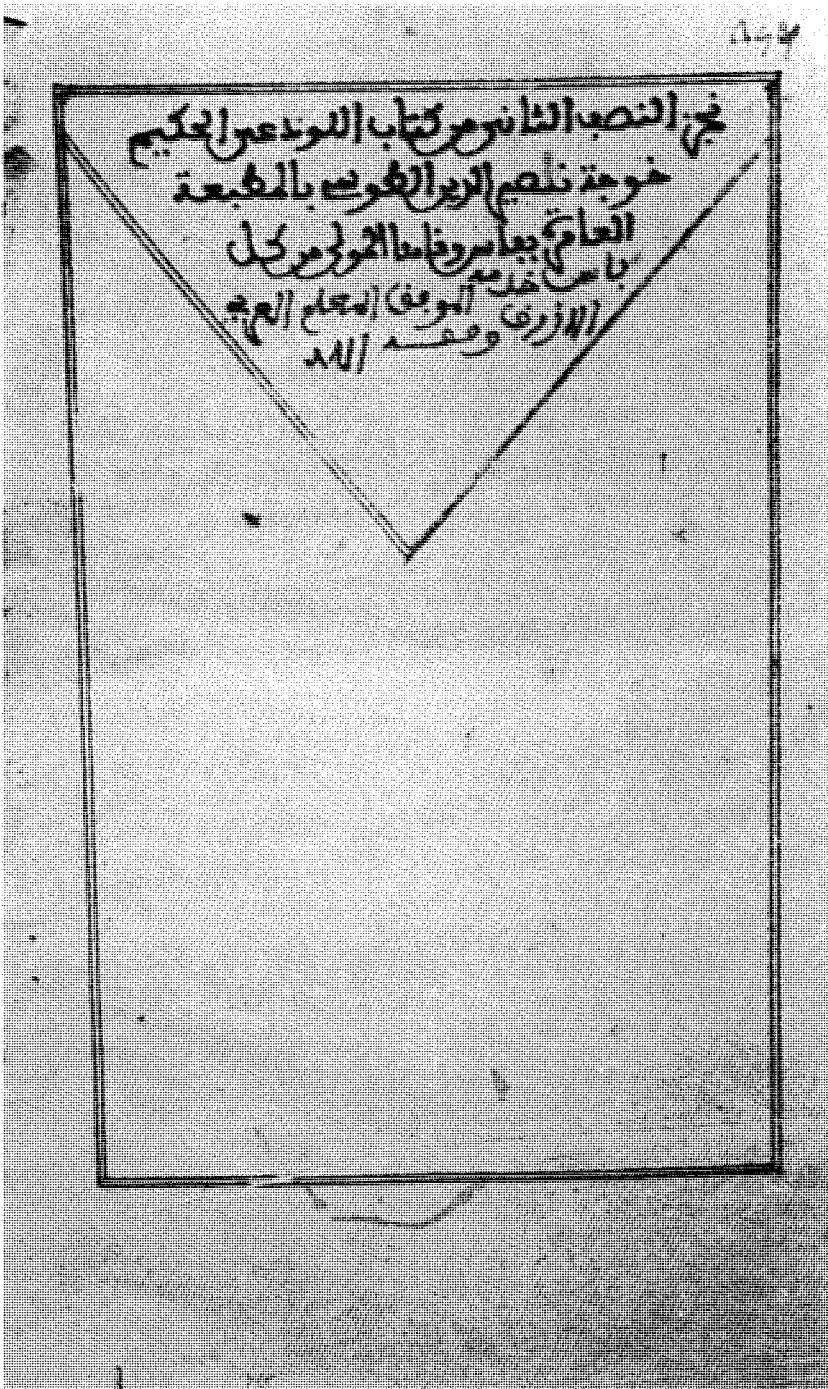 نجز النصف الثاني من كتاب اللوذعي الحكيم
خوجة نصير الدين الطوسي بالمطبعة
العامرة بفاس وقاها المولى من كل
باس خديمه الموفق المعلم العربي
الازرق وفقه الله